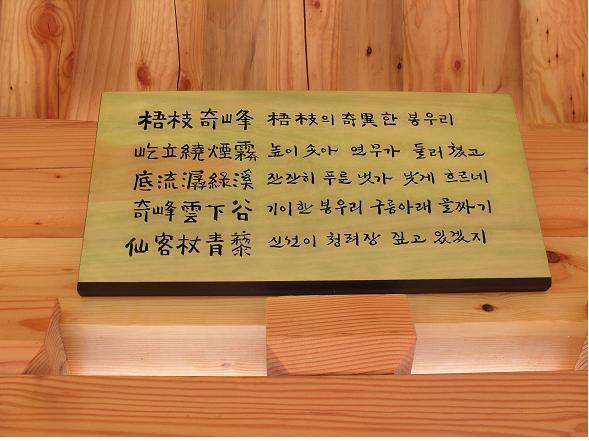 梧枝奇峰 梧枝의 奇異한 봉우리
屹立繞煙霧 높이 솟아 연무가 둘러 쳤고
底流潺綠溪 잔잔히 푸른 냇가 낮게 흐르네
奇峰雲下谷 기이한 봉우리 구름아래 골짜기
仙客杖青藜 신선이 청려장 짚고 있겠지